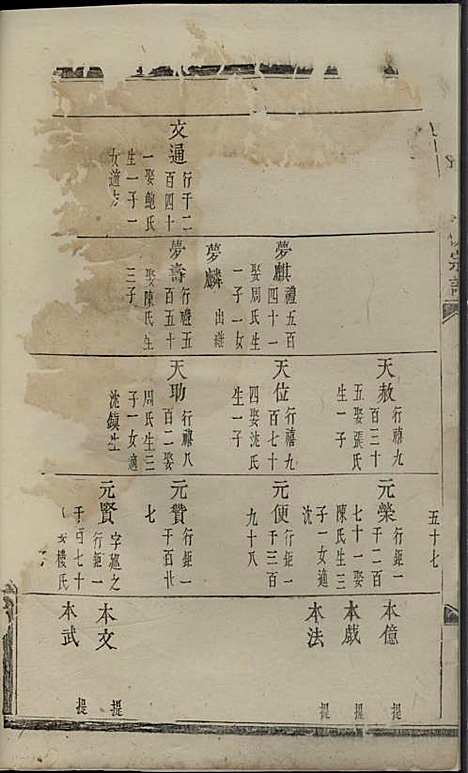 文通 行于二
百四十
一娶鮑氏
生一子一
女適方
夢麒 禮五百
四十一
娶周氏生
一子一女
夢麟 出繼
夢壽 行禮五
百五十
娶陳氏生
三子
天赦 行禧九
百三十
五娶張氏
生一子
天位 行禧九
百七十
四娶沈氏
生一子
天助 行禧八
百二娶
周氏生三
子一女適
沈鎮生
五十七
元榮 行鉅一
千二百
七十一娶
陳氏生三
子一女適
沈
元便 行鉅一
千三百
九十八
元贊 行鉅一
千百廿
七
元賢 字蘊之
行鉅一
千百七十
娶樓氏
本億 提
本戲 提
本法 提
本文 提
本武 提